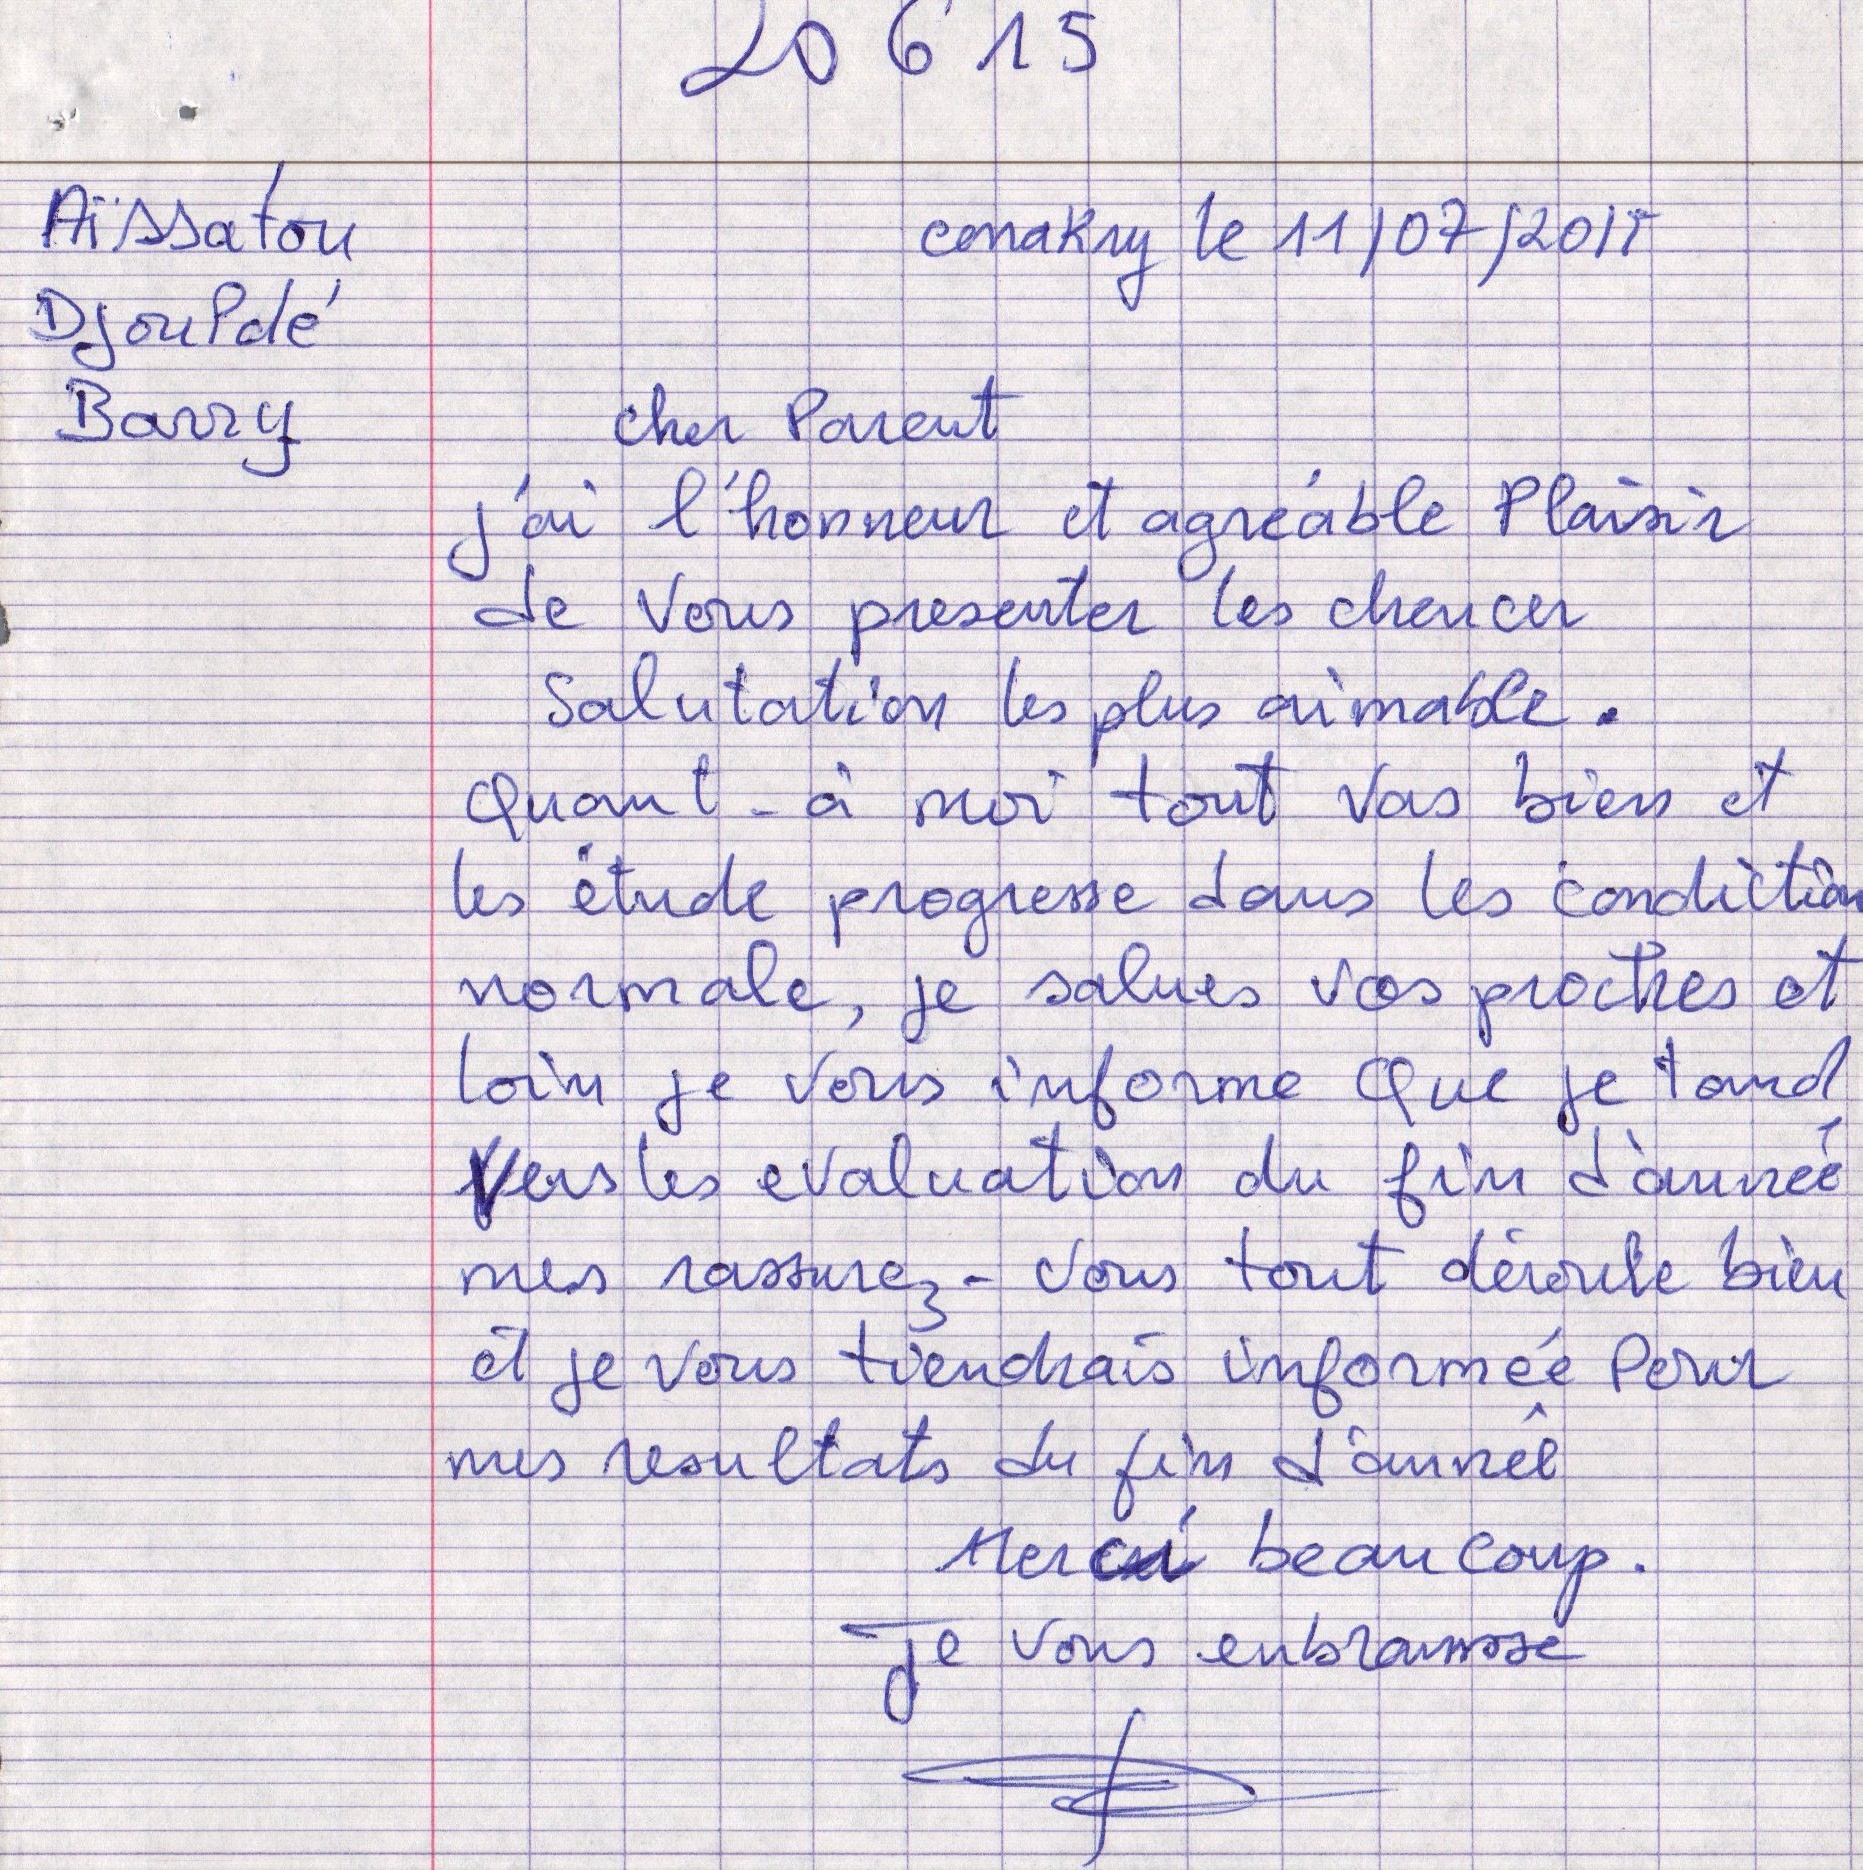 20 6 15
Aïssatou
Djouldé
Barry
conakry le 11/07/2015
cher Parent
j'ai l'honneur et agréable Plaisir
de vous presenter les
Salutation les plus aimable.
Quant-à moi tout vas bien et
les étude progresse dans les condiction
normale, je salues vos proches et
loin je vous informe Que je tand
Vers les evaluation du fin d'année
mes rassurez-vous tout déroule bien
et je vous tiendrais informée Pour
mes resultats du fin d'anneê
Merci beaucoup.
Je vous enbrasse